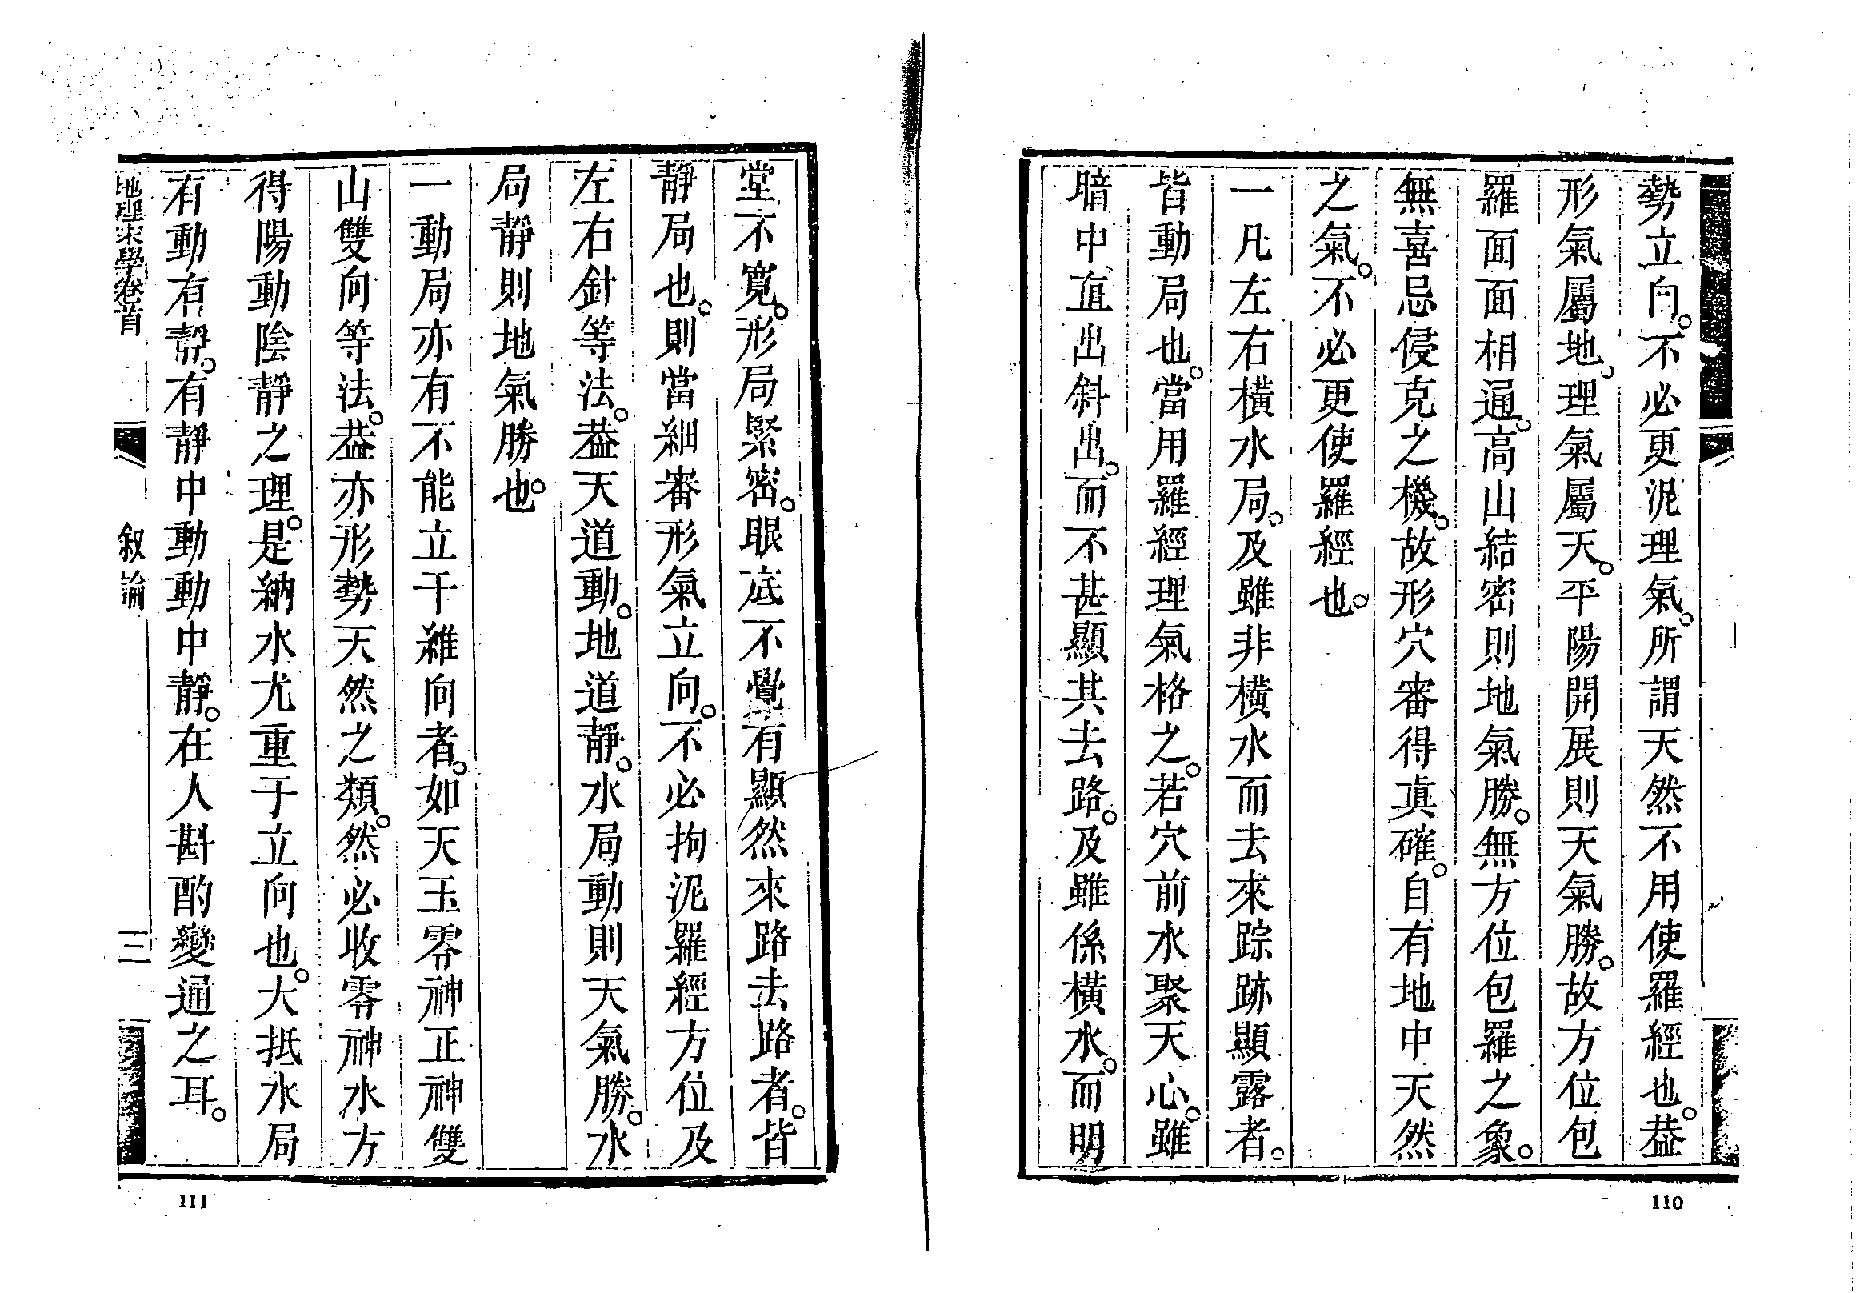 勢立向。不必更泥理氣。所謂天然不用使羅經也。葢
形氣屬地。理氣屬天。平陽開展則天氣勝。故方位包
羅面面相通。高山結密則地氣勝。無方位包羅之象。
無喜忌侵克之機。故形穴審得眞確。自有地中天然
之氣。不必更使羅經也。
一凡左右橫水局。及雖非橫水而去來踪跡顯露者。
皆動局也。當用羅經理氣格之。若穴前水聚天心。雖
暗中直出斜出。而不甚顯其去路。及雖係橫水。而明
110
堂不寬。形局緊密。眼底不覺有顯然來路去路者。皆
靜局也。則當細審形氣立向。不必拘泥羅經方位及
左右針等法。葢天道動。地道靜。水局動則天氣勝。水
局靜則地氣勝也。
一動局亦有不能立干維向者。如天玉零神正神雙
山雙向等法。葢亦形勢天然之類。然必收零神水方
得陽動陰靜之理。是納水尤重于立向也。大抵水局
有動有靜。有靜中動動中靜。在人斟酌變通之耳。
地理末學卷首
敘論
三
111